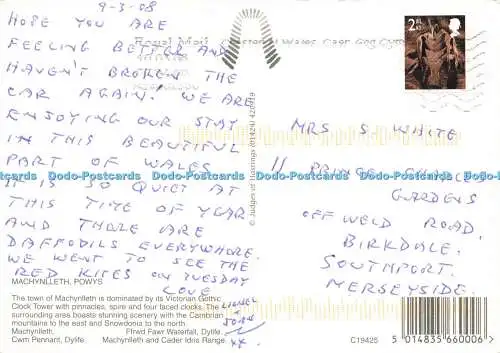 9-3-08
HOPE YOU ARE
FEELING BETTER AND
HAVEN'T BROKEN THE
CAR AGAIN. WE ARE
ENJOYING OUR STAY
IN THIS BEAUTIFUL
PART OF WALES
IT IS SO QUIET AT
THIS TIME OF YEAR
AND THERE ARE
DAFFODILS EVERYWHERE.
WE WENT TO SEE THE
RED KITES ON TUESDAY
LOVE
LIONEL
JOAN
xx
MACHYNLLETH, POWYS
The town of Machynlleth is dominated by its Victorian Gothic
Clock Tower with pinnacles, spire and four faced clocks. The
surrounding area boasts stunning scenery with the Cambrian
mountains to the east and Snowdonia to the north.
Machynlleth. Ffrwd Fawr Waterfall, Dylife.
Cwm Pennant, Dylife. Machynlleth and Cader Idris Range.
Royal Mail
© Judges of Hastings (01424) 420919
2nd
MRS S WHITE
11
GARDENS
OFF WELD ROAD.
BIRKDALE.
SOUTHPORT.
MERSEYSIDE.
C19425
5 014835 660006
Dodo-Postcards Dodo-Postcards Dodo-Postcards Dodo-Postcards Dodo-Postcards